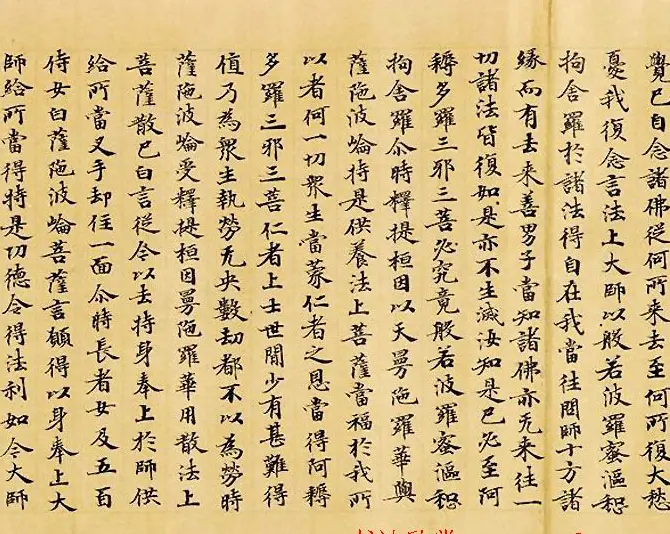 覺已自念諸佛從何所來去至何所復大愁
憂我復念言法上大師以般若波羅蜜漚惒
拘舍羅於諸法得自在我當往問師十方諸
緣而有去來善男子當知諸佛亦无來往一
切諸法皆復如是亦不生滅汝知是已必至阿
耨多羅三耶三菩必究竟般若波羅蜜漚惒
拘舍羅尒時釋提桓因以天曼陁羅華與
薩陁波崘持是供養法上菩薩當福於我所
以者何一切衆生當蒙仁者之恩當得阿耨
多羅三邪三菩仁者上士世間少有甚難得
值乃為衆生執勞无央數劫都不以為勞時
薩陁波崘受釋提桓因曼陁羅華用散法上
菩薩散已白言從今以去持身奉上於師供
給所當叉手却住一面尒時長者女及五百
侍女白薩陁波崘菩薩言願得以身奉上大
師給所當得持是功德令得法利如今大師